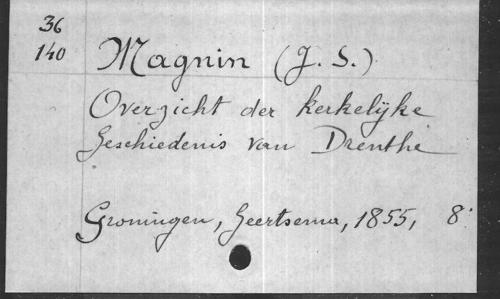 36
140
Magnin (J. S.)
Overzicht der kerkelijke
Geschiedenis van Drenthe
Groningen, Geertsema, 1855, 8°